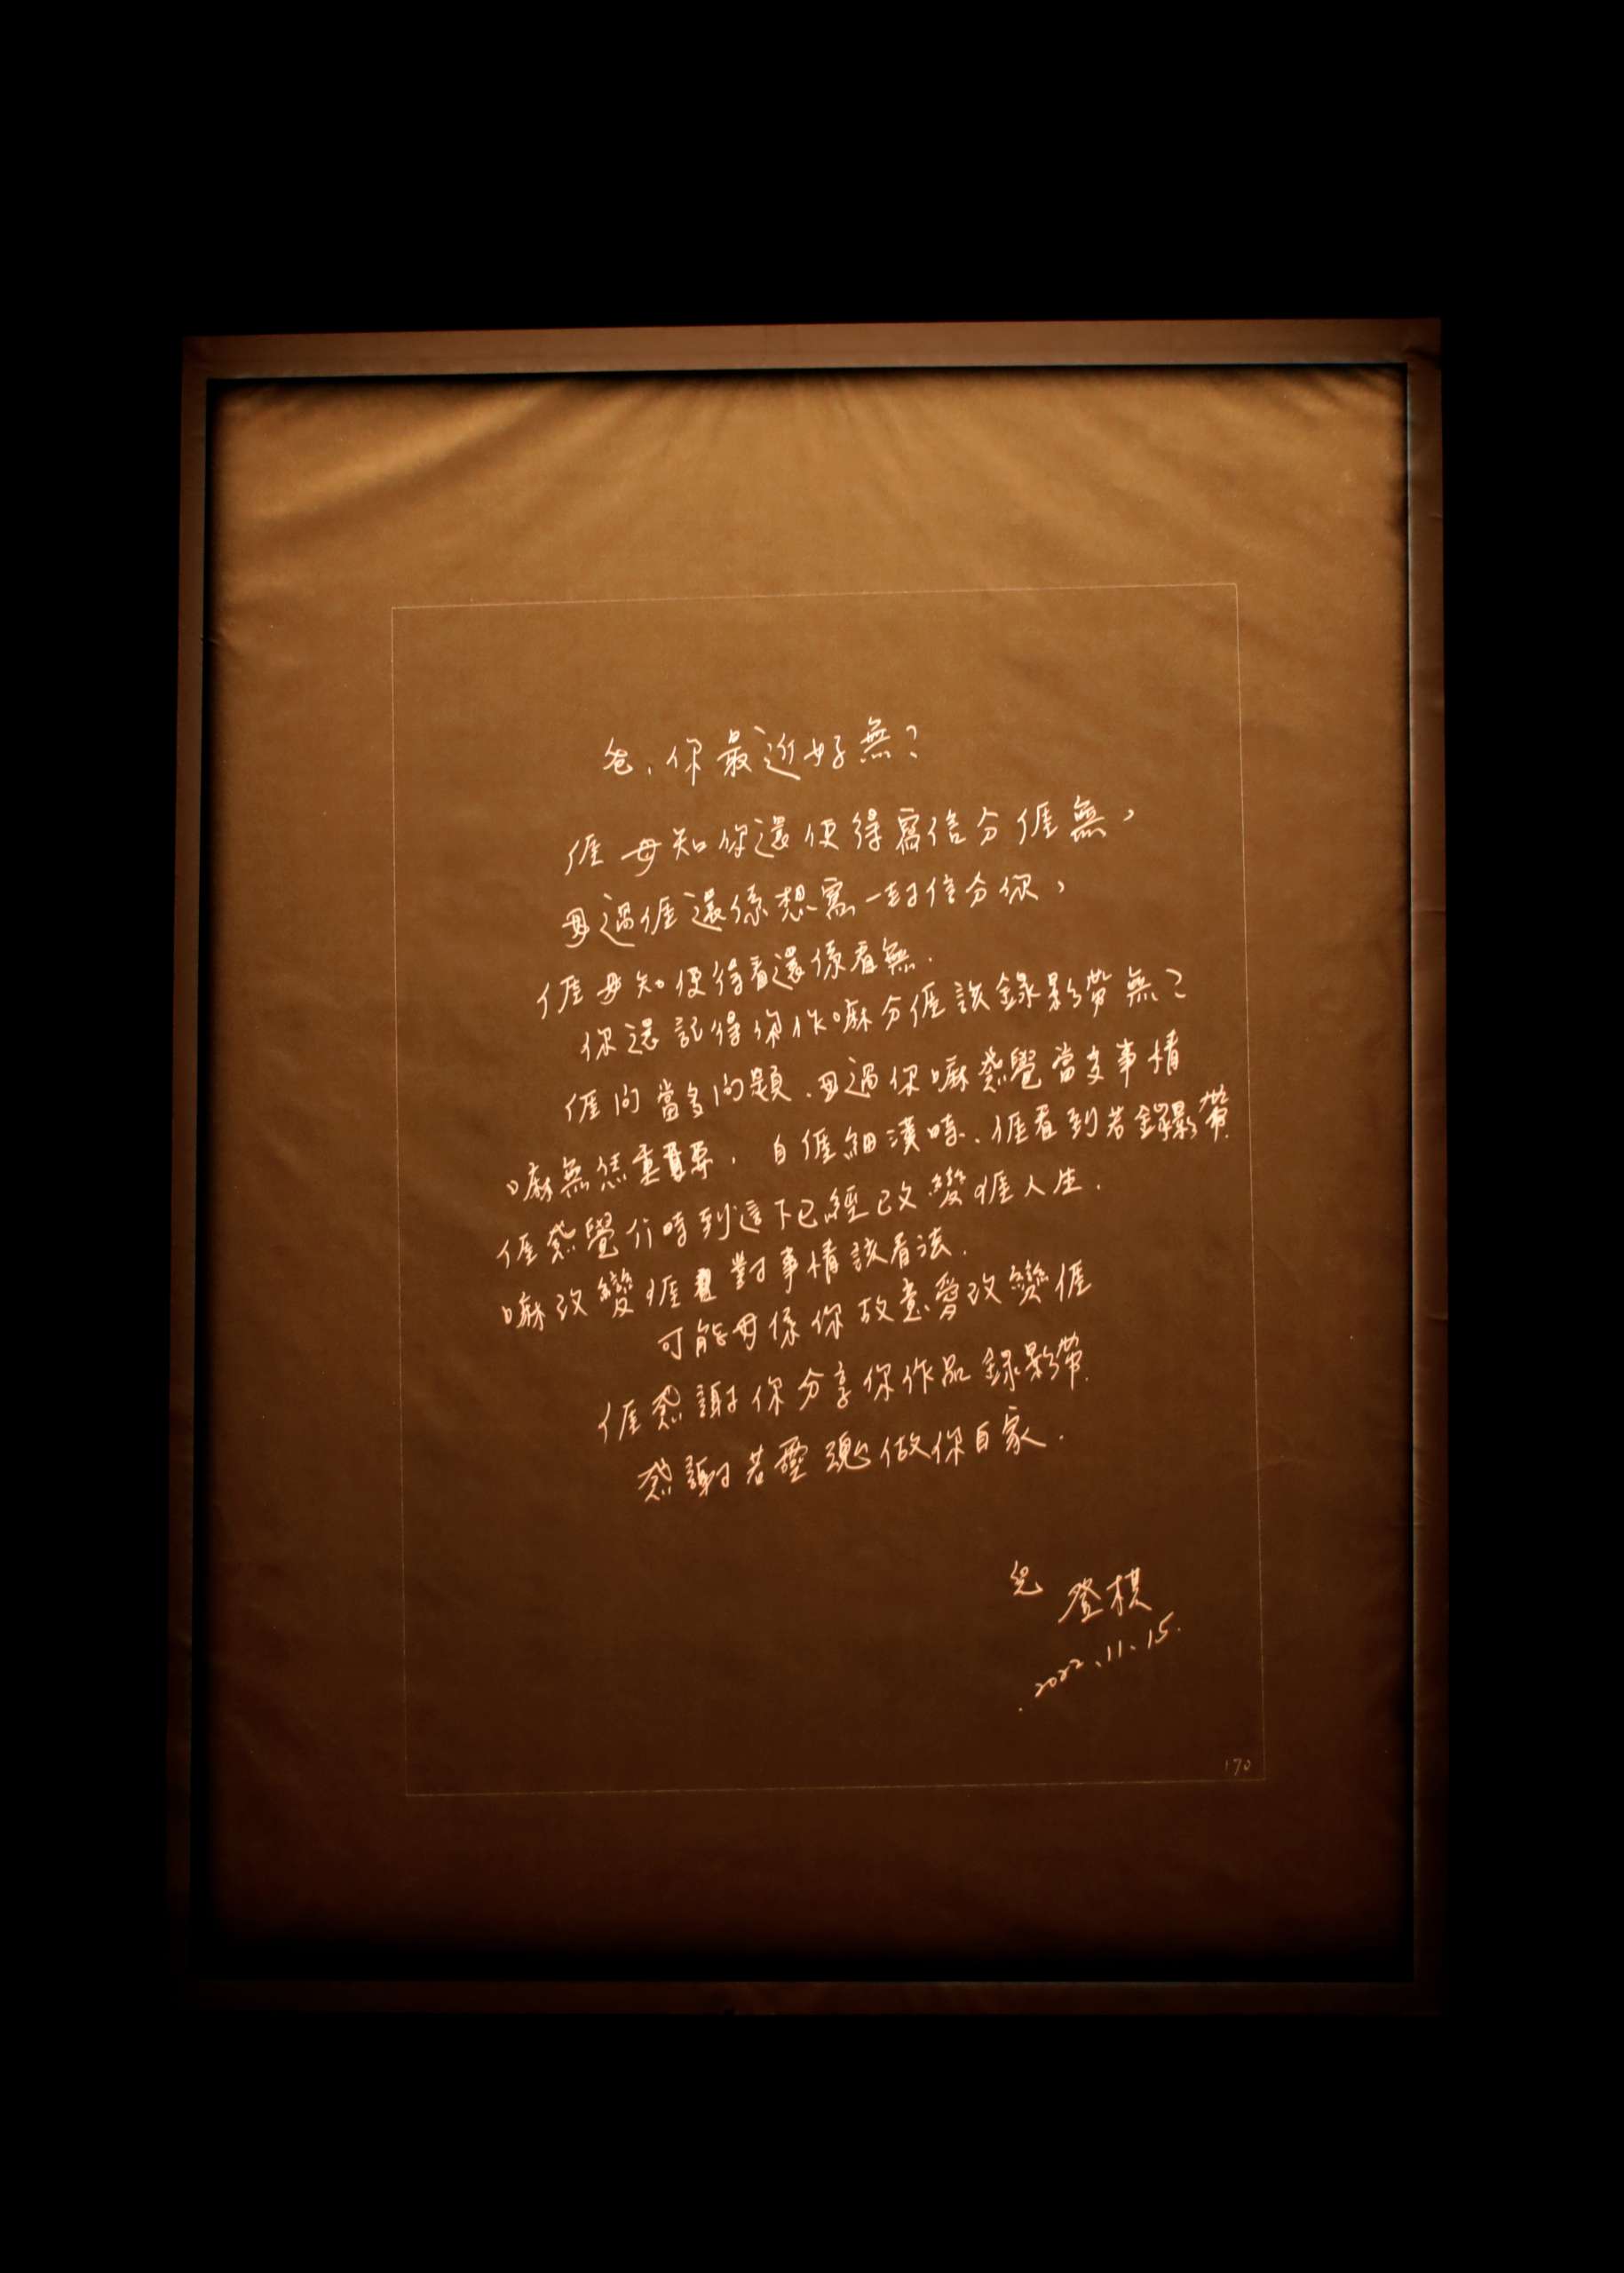 爸、你最近好無？
𠊎毋知你還使得寫信分𠊎無，
毋過𠊎還係想寫一封信分你，
𠊎毋知使得看還係看無.
你還記得你作嘛分𠊎該錄影帶無？
𠊎問當多問題、毋過你嘛感覺當多事情
嘛無恁重要，自𠊎細漢時、𠊎看到若錄影帶
𠊎感覺介時到這下已經改變𠊎人生.
嘛改變𠊎對事情該看法.
可能毋係你故意愛改變𠊎
𠊎感謝你分享你作品錄影帶.
感謝若靈魂做你自家.
兒 登棋
2022、11、15.
170